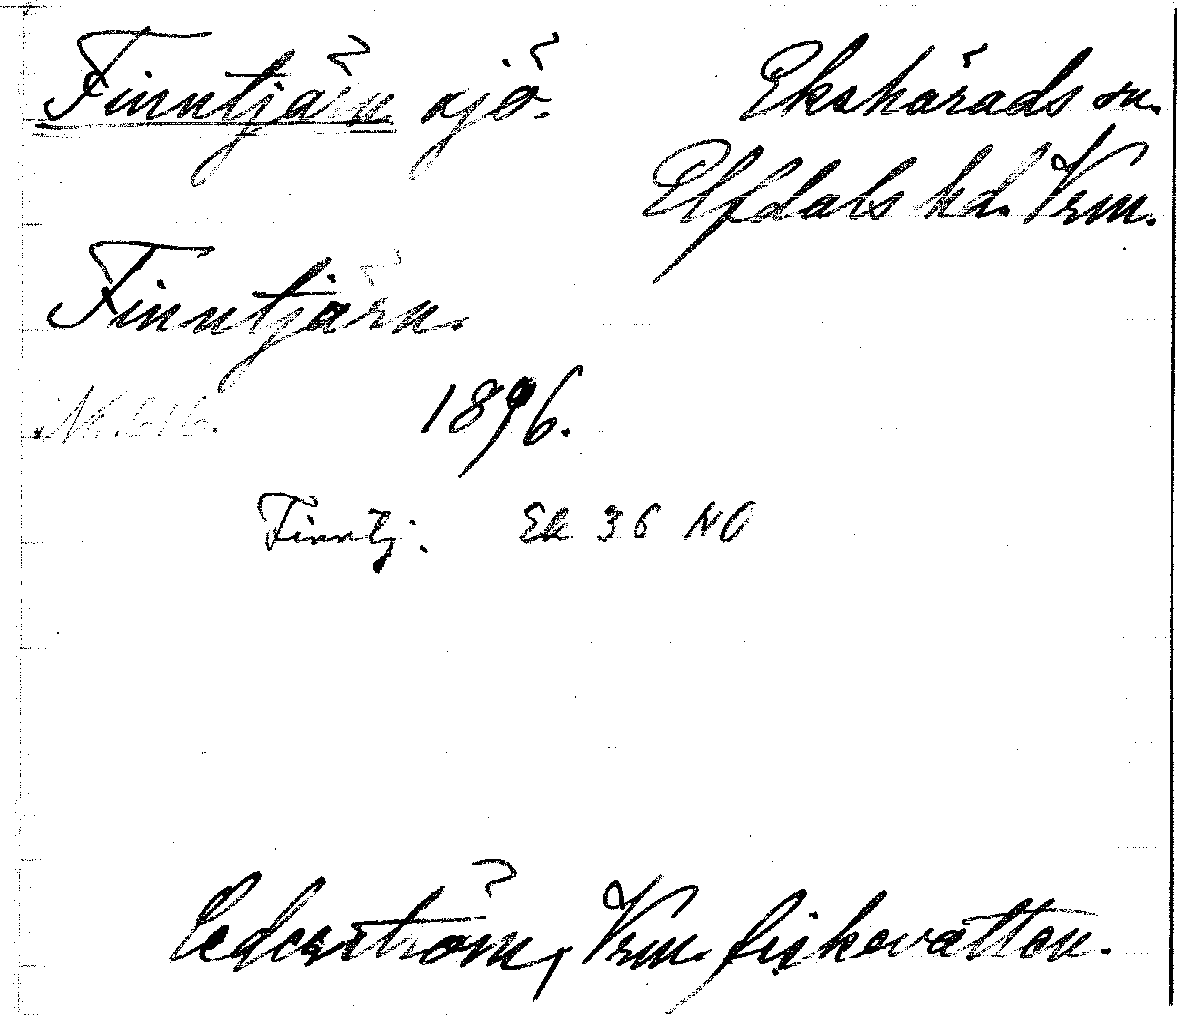 Finntjärn sjö. Ekshärads sn.
Elfdals hd. Vrm.
Finntjärn.
Nr. 616. 1896.
Finntj. Ek 36 NO
Cederström, Vrm. fiskevatten.